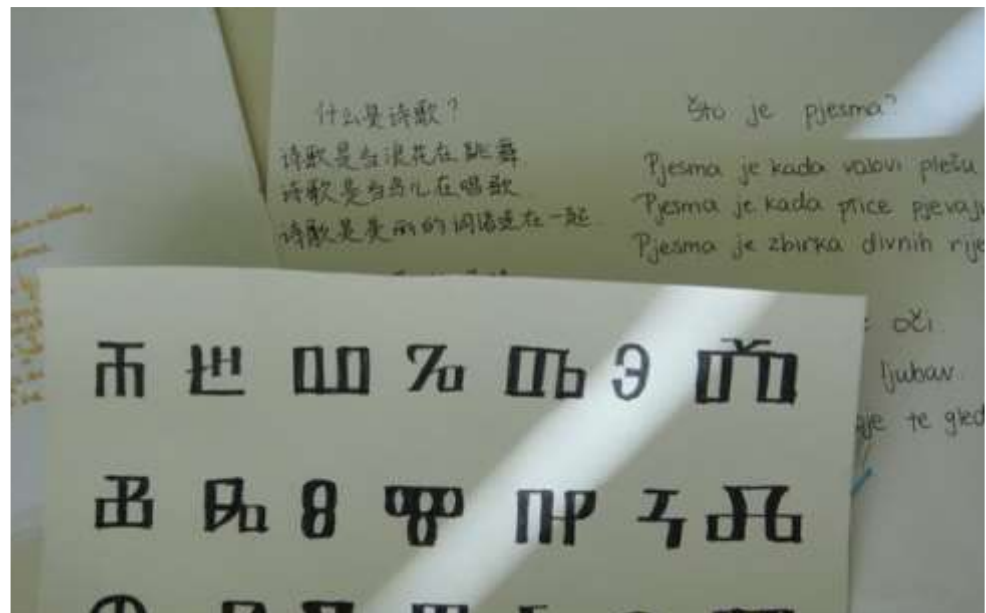 什么是诗歌?
诗歌是当浪花在跳舞
诗歌是当鸟儿在唱歌
诗歌是美丽的词语连在一起
Što je pjesma?
Pjesma je kada valovi plešu
Pjesma je kada ptice pjevaj
Pjesma je zbirka divnih rije
oči
ljubav
te gled
Ⰰ Ⰱ Ⰲ Ⰳ Ⰴ Ⰵ Ⰶ
Ⰷ Ⰸ Ⰻ Ⰹ Ⰼ Ⰽ Ⰾ